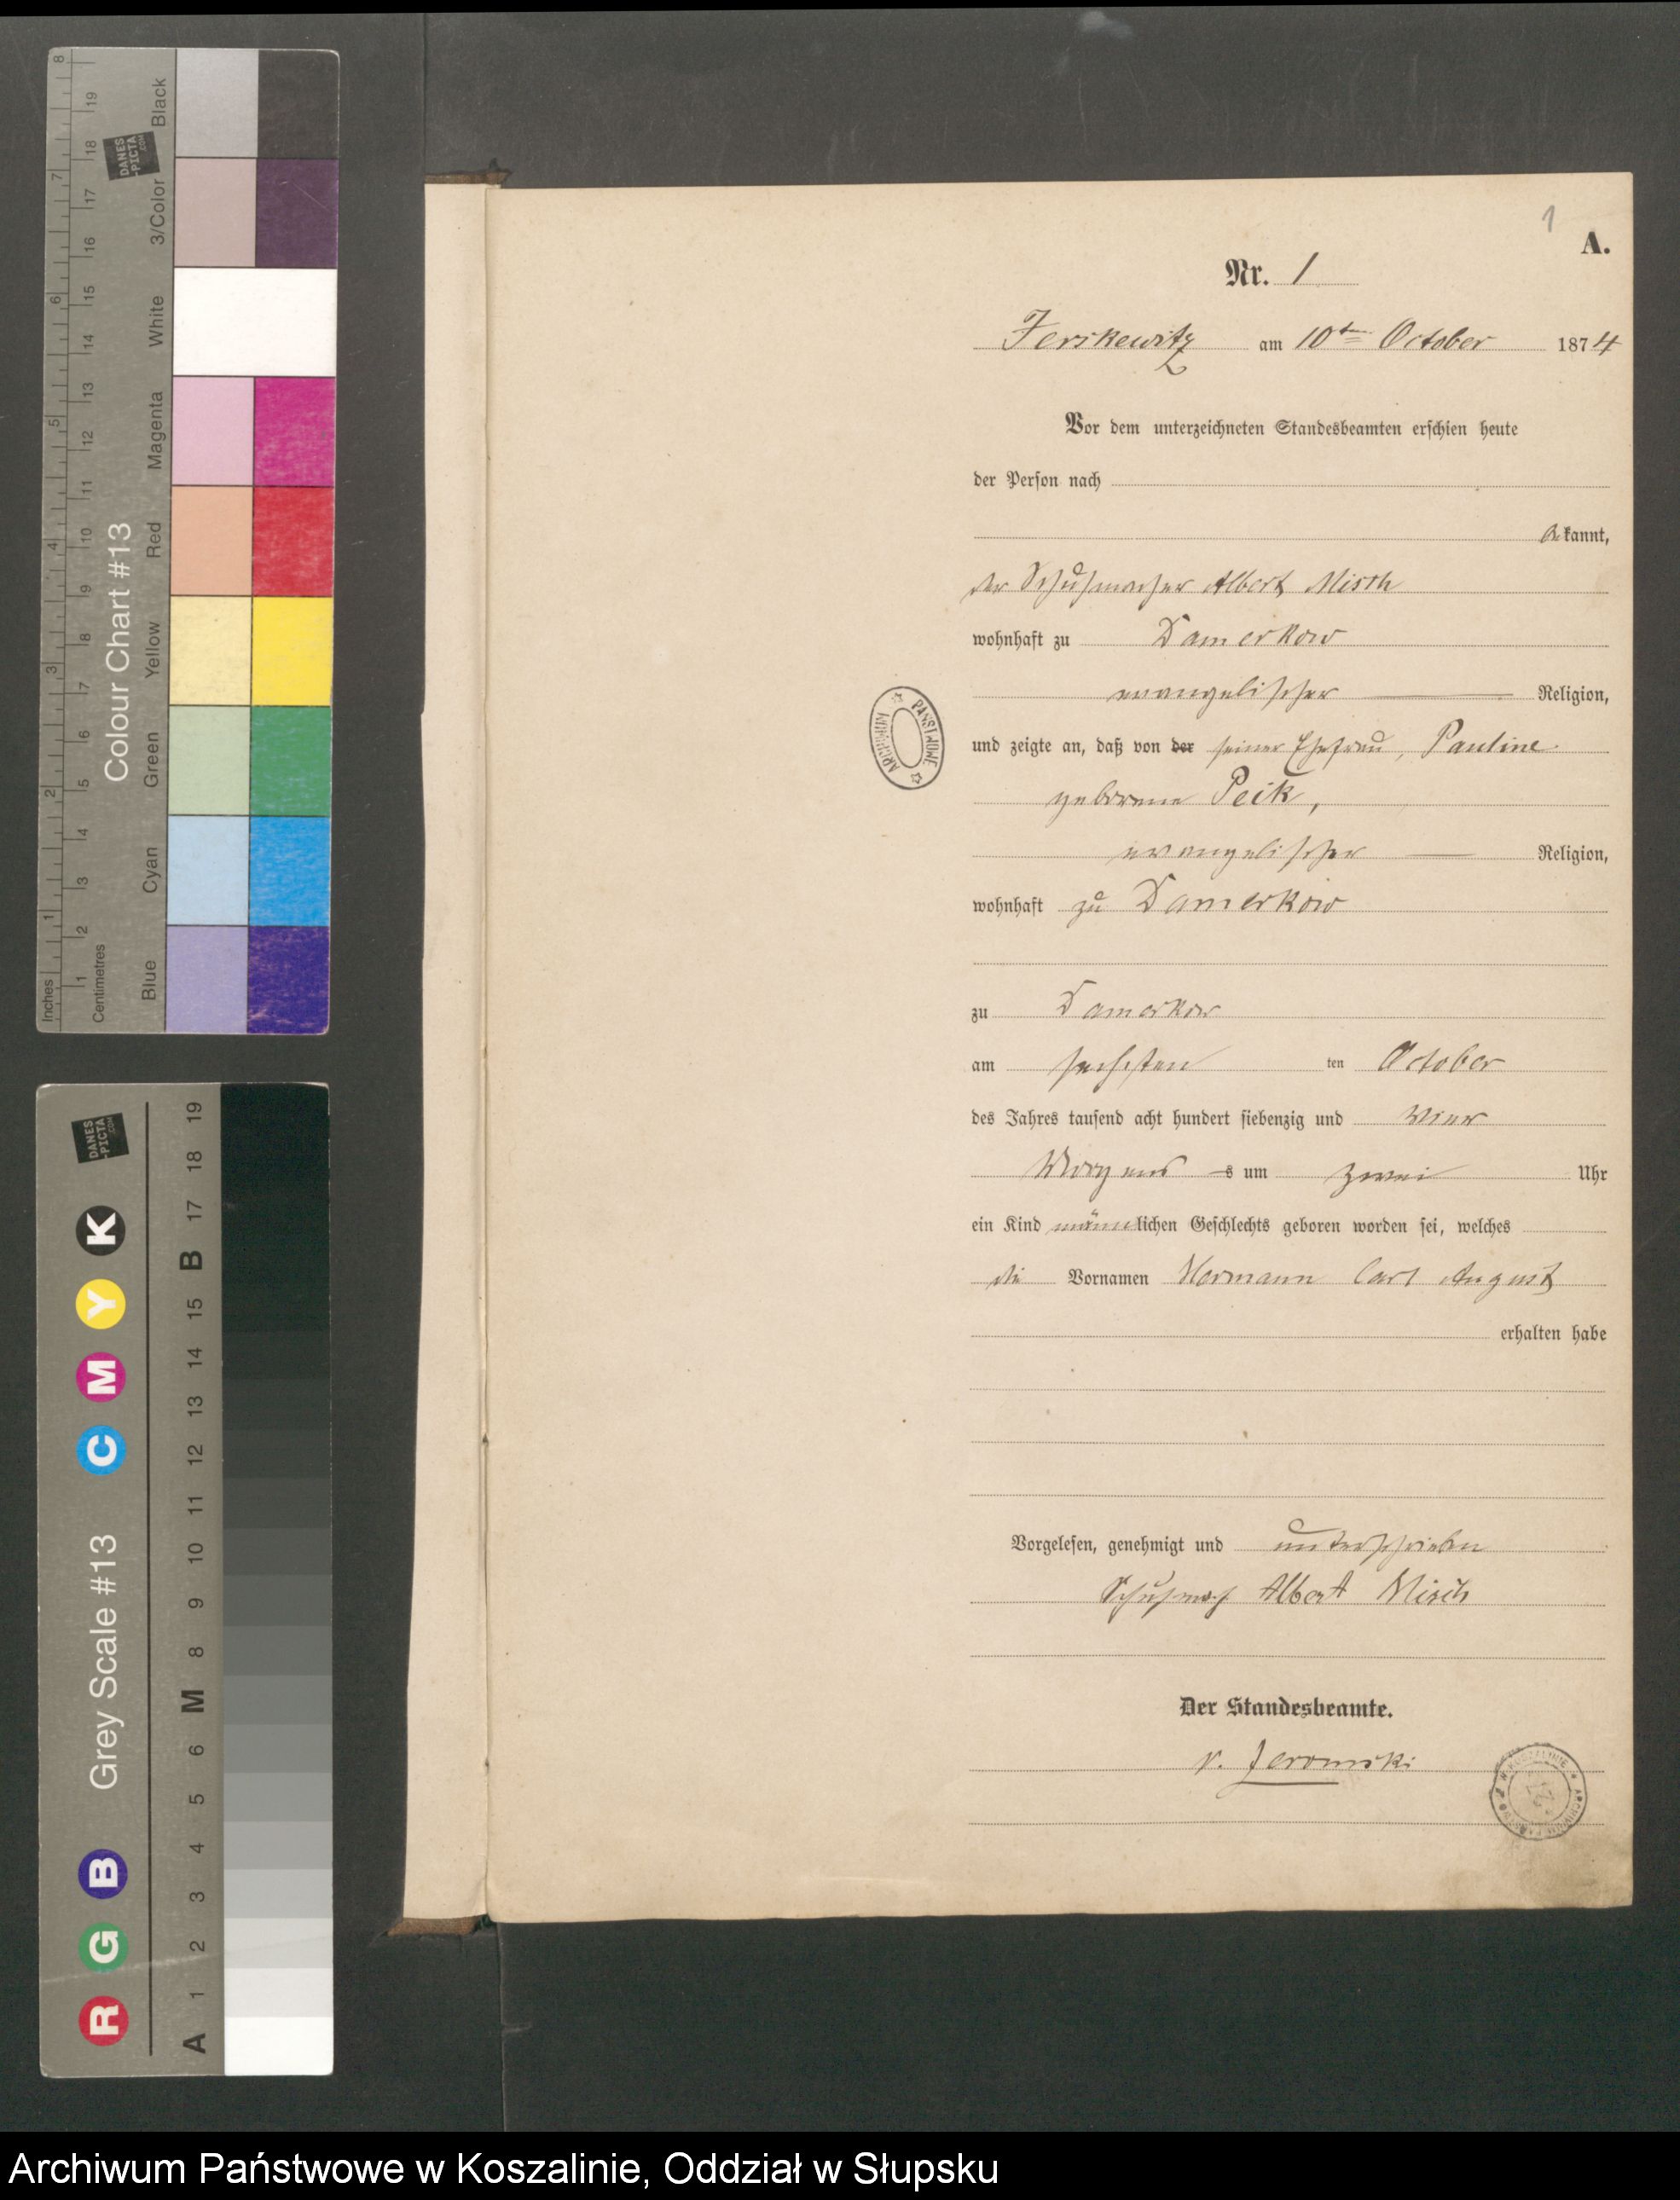 1
A.
Nr. 1
Jerskewitz am 10t October 1874
Vor dem unterzeichneten Standesbeamten erschien heute
der Person nach
bekannt,
der Schuhmacher Albert Misch
wohnhaft zu Damerkow
evangelischer Religion,
und zeigte an, daß von der seiner Ehefrau, Pauline
geborene Peik,
evangelischer Religion,
wohnhaft zu Damerkow
zu Damerkow
am sechsten ten October
des Jahres tausend acht hundert siebenzig und vier
Morgens s um zwei Uhr
ein Kind männlichen Geschlechts geboren worden sei, welches
die Vornamen Hermann Carl August
erhalten habe
Vorgelesen, genehmigt und unterschrieben
Schuhmach Albert Misch
Der Standesbeamte.
v.
ARCHIWUM PAŃSTWOWE
Colour Chart #13
Blue Cyan Green Yellow Red Magenta White 3/Color Black
Inches 1 2 3 4 5 6 7 8
Centimetres 1 2 3 4 5 6 7 8 9 10 11 12 13 14 15 16 17 18 19
DANES-PICTA.COM
Grey Scale #13
R G B C M Y K
A 1 2 3 4 5 6 M 8 9 10 11 12 13 14 15 B 17 18 19
DANES-PICTA.COM
Archiwum Państwowe w Koszalinie, Oddział w Słupsku